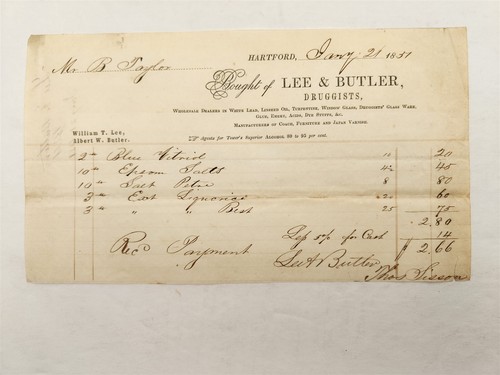 HARTFORD, Jany. 21 1851
Mr B. Taylor
Bought of LEE & BUTLER,
DRUGGISTS,
WHOLESALE DEALERS IN WHITE LEAD, LINSEED OIL, TURPENTINE, WINDOW GLASS, DRUGGISTS' GLASS WARE,
GLUE, EMERY, ACIDS, DYE STUFFS, &C.
MANUFACTURERS OF COACH, FURNITURE AND JAPAN VARNISH.
William T. Lee,
Albert W. Butler.
Agents for Tower's Superior ALCOHOL 80 to 95 per cent.
2 " Blue Vitriol 10 20
10 " Epsom Salts 4½ 45
10 " Salt Petre 8 80
3 " Ext Liquorice 20 60
3 " " " Best 25 75
2.80
Less 5% for Cash 14
Recd Payment $ 2.66
Lee & Butler
Thos Sisson